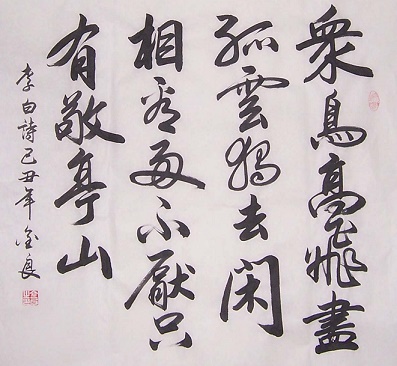 衆鳥高飛盡
孤雲獨去閑
相看兩不厭只
有敬亭山
李白詩己丑年金良